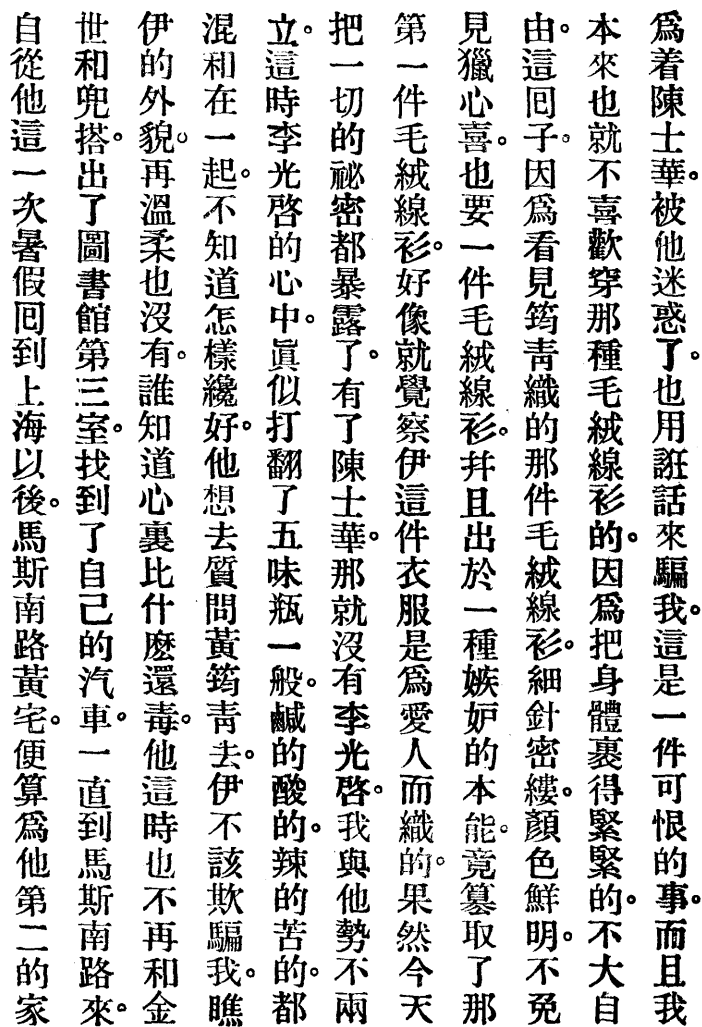 爲着陳士華。被他迷惑了。也用誑話來騙我。這是一件可恨的事。而且我
本來也就不喜歡穿那種毛絨線衫的。因爲把身體裹得緊緊的。不大自
由。這囘子。因爲看見筠青織的那件毛絨線衫。細針密縷。顏色鮮明。不免
見獵心喜。也要一件毛絨線衫。幷且出於一種嫉妒的本能。竟篡取了那
第一件毛絨線衫。好像就覺察伊這件衣服是爲愛人而織的。果然今天
把一切的祕密都暴露了。有了陳士華。那就沒有李光啓。我與他勢不兩
立。這時李光啓的心中。眞似打翻了五味瓶一般。鹹的酸的。辣的苦的。都
混和在一起。不知道怎樣纔好。他想去質問黃筠青去。伊不該欺騙我。瞧
伊的外貌。再溫柔也沒有。誰知道心裏比什麽還毒。他這時也不再和金
世和兜搭。出了圖書館第三室。找到了自己的汽車。一直到馬斯南路來。
自從他這一次暑假囘到上海以後。馬斯南路黃宅。便算爲他第二的家